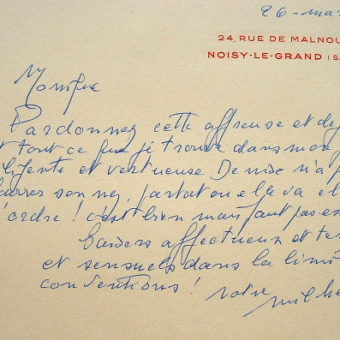 26-mar
24, RUE DE MALNOU
NOISY-LE-GRAND (S
Monique
Pardonnez cette affreuse et
t tout ce que je trouve dans mon
ligente et vertueuse Denise n'a p
son nez partout ou elle va el
l'ordre! c'est bien mais faut pas
baisers affectueux et te
et sensuels dans la limi
conventions!
votre Miche